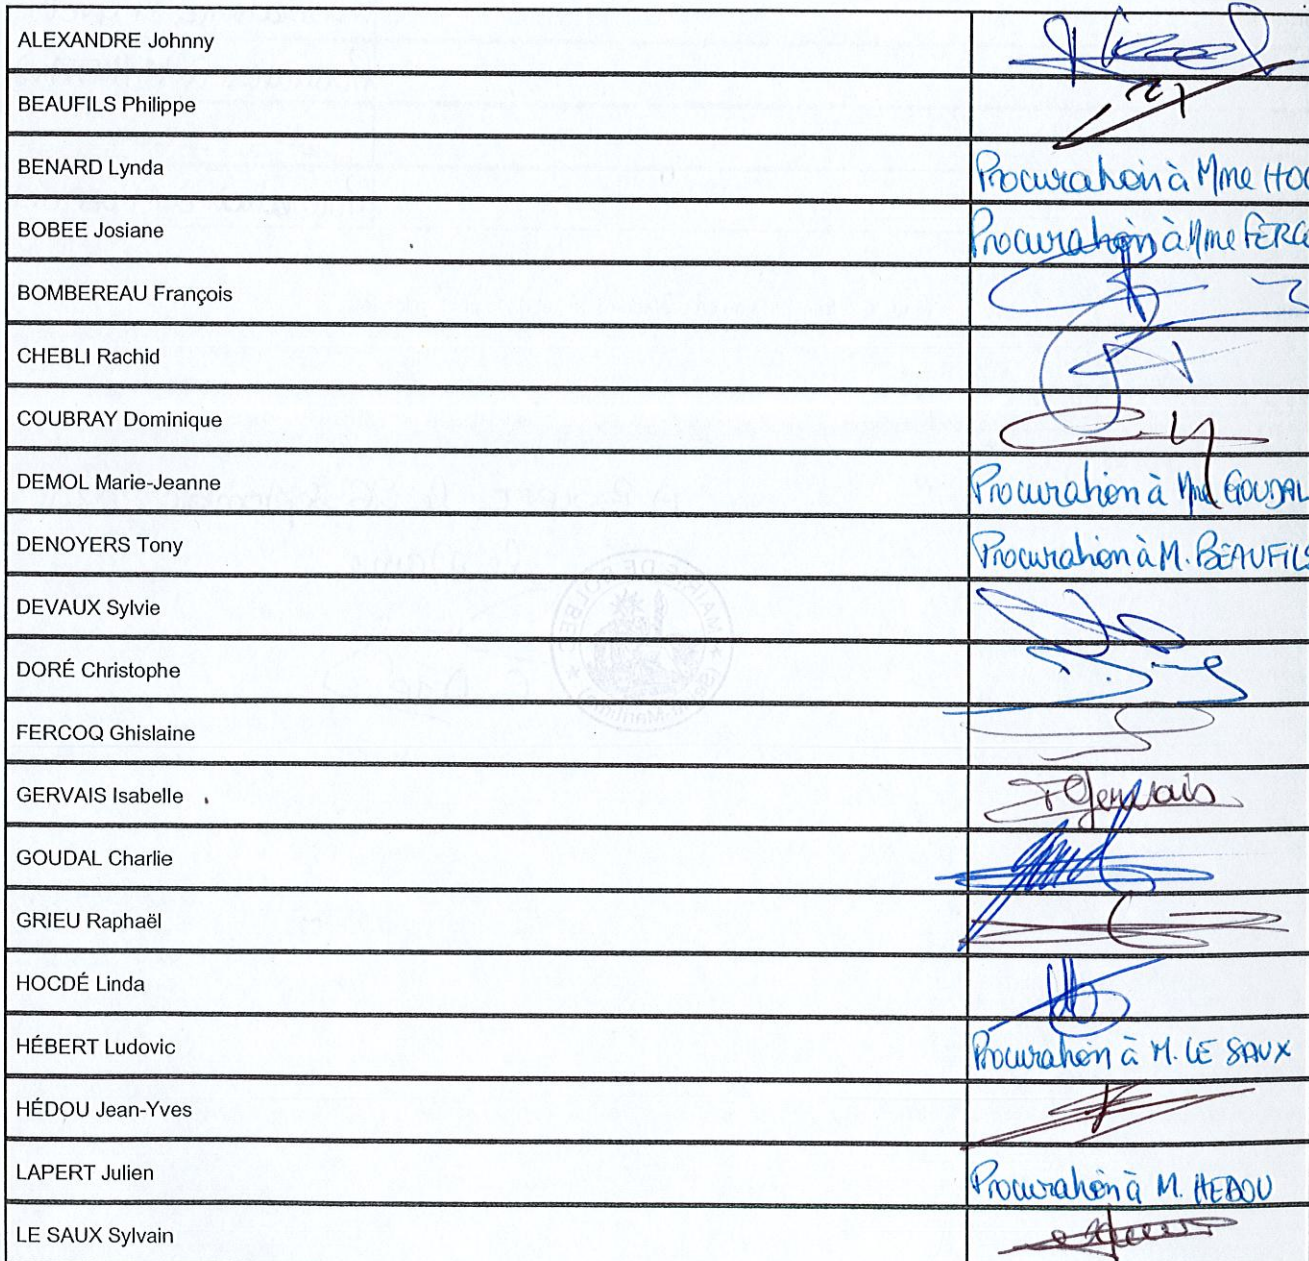 ALEXANDRE Johnny
BEAUFILS Philippe
BENARD Lynda Procuration à Mme HOC
BOBEE Josiane Procuration à Mme FERC
BOMBEREAU François
CHEBLI Rachid
COUBRAY Dominique
DEMOL Marie-Jeanne Procuration à Mme GOUDAL
DENOYERS Tony Procuration à M. BEAUFILS
DEVAUX Sylvie
DORÉ Christophe
FERCOQ Ghislaine
GERVAIS Isabelle Gervais
GOUDAL Charlie
GRIEU Raphaël
HOCDÉ Linda
HÉBERT Ludovic Procuration à M. LE SAUX
HÉDOU Jean-Yves
LAPERT Julien Procuration à M. HEDOU
LE SAUX Sylvain